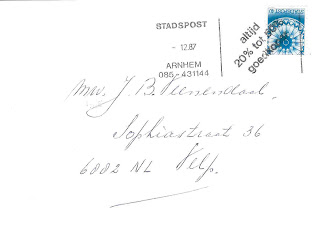 STADSPOST
- 12.87
ARNHEM
085-431144
altijd
20% tot 50%
goedkoper
Mw. J. B. Veenendaal.
Sophiastraat 36
6882 NL Velp.